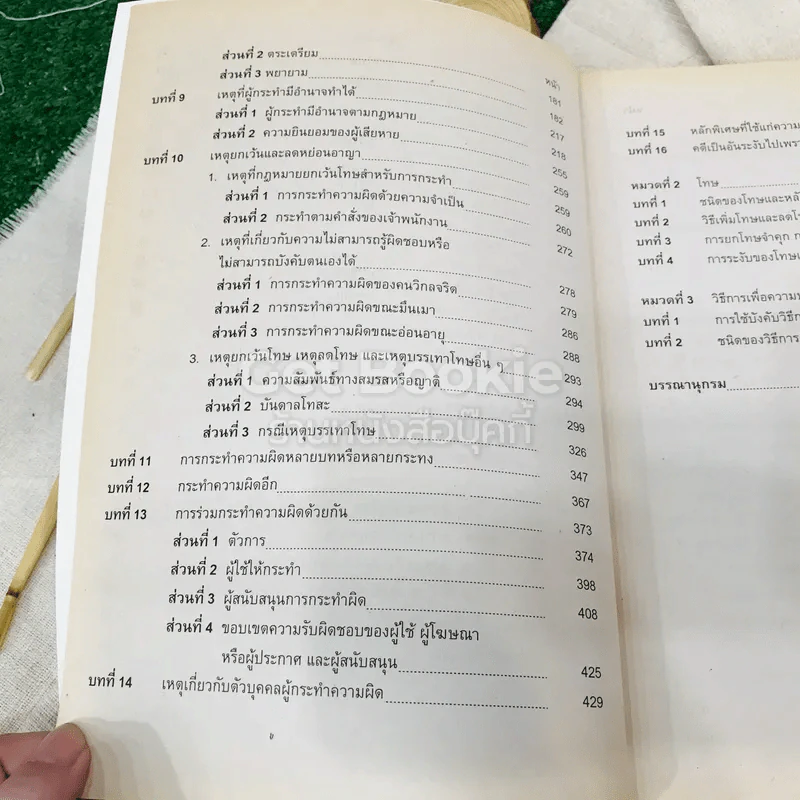 หน้า
ส่วนที่ 2 ตระเตรียม 181
ส่วนที่ 3 พยายาม 182
บทที่ 9 เหตุที่ผู้กระทำมีอำนาจทำได้ 217
ส่วนที่ 1 ผู้กระทำมีอำนาจตามกฎหมาย 218
ส่วนที่ 2 ความยินยอมของผู้เสียหาย 255
บทที่ 10 เหตุยกเว้นและลดหย่อนอาญา 259
1. เหตุที่กฎหมายยกเว้นโทษสำหรับการกระทำ 259
ส่วนที่ 1 การกระทำความผิดด้วยความจำเป็น 260
ส่วนที่ 2 กระทำตามคำสั่งของเจ้าพนักงาน 272
2. เหตุที่เกี่ยวกับความไม่สามารถรู้ผิดชอบหรือ
ไม่สามารถบังคับตนเองได้ 278
ส่วนที่ 1 การกระทำความผิดของคนวิกลจริต 279
ส่วนที่ 2 การกระทำความผิดขณะมึนเมา 286
ส่วนที่ 3 การกระทำความผิดขณะอ่อนอายุ 288
3. เหตุยกเว้นโทษ เหตุลดโทษ และเหตุบรรเทาโทษอื่น ๆ 293
ส่วนที่ 1 ความสัมพันธ์ทางสมรสหรือญาติ 294
ส่วนที่ 2 บันดาลโทสะ 299
ส่วนที่ 3 กรณีเหตุบรรเทาโทษ 326
บทที่ 11 การกระทำความผิดหลายบทหรือหลายกระทง 347
บทที่ 12 กระทำความผิดอีก 367
บทที่ 13 การร่วมกระทำความผิดด้วยกัน 373
ส่วนที่ 1 ตัวการ 374
ส่วนที่ 2 ผู้ใช้ให้กระทำ 398
ส่วนที่ 3 ผู้สนับสนุนการกระทำผิด 408
ส่วนที่ 4 ขอบเขตความรับผิดชอบของผู้ใช้ ผู้โฆษณา
หรือผู้ประกาศ และผู้สนับสนุน 425
บทที่ 14 เหตุเกี่ยวกับตัวบุคคลผู้กระทำความผิด 429
บทที่ 15 หลักพิเศษที่ใช้แก่ความ
บทที่ 16 คดีเป็นอันระงับไปเพรา
หมวดที่ 2 โทษ
บทที่ 1 ชนิดของโทษและหลั
บทที่ 2 วิธีเพิ่มโทษและลดโ
บทที่ 3 การยกโทษจำคุก ก
บทที่ 4 การระงับของโทษแ
หมวดที่ 3 วิธีการเพื่อความ
บทที่ 1 การใช้บังคับวิธีก
บทที่ 2 ชนิดของวิธีการ
บรรณานุกรม
Get Bookie
ร้านหนังสือบุ๊คกี้